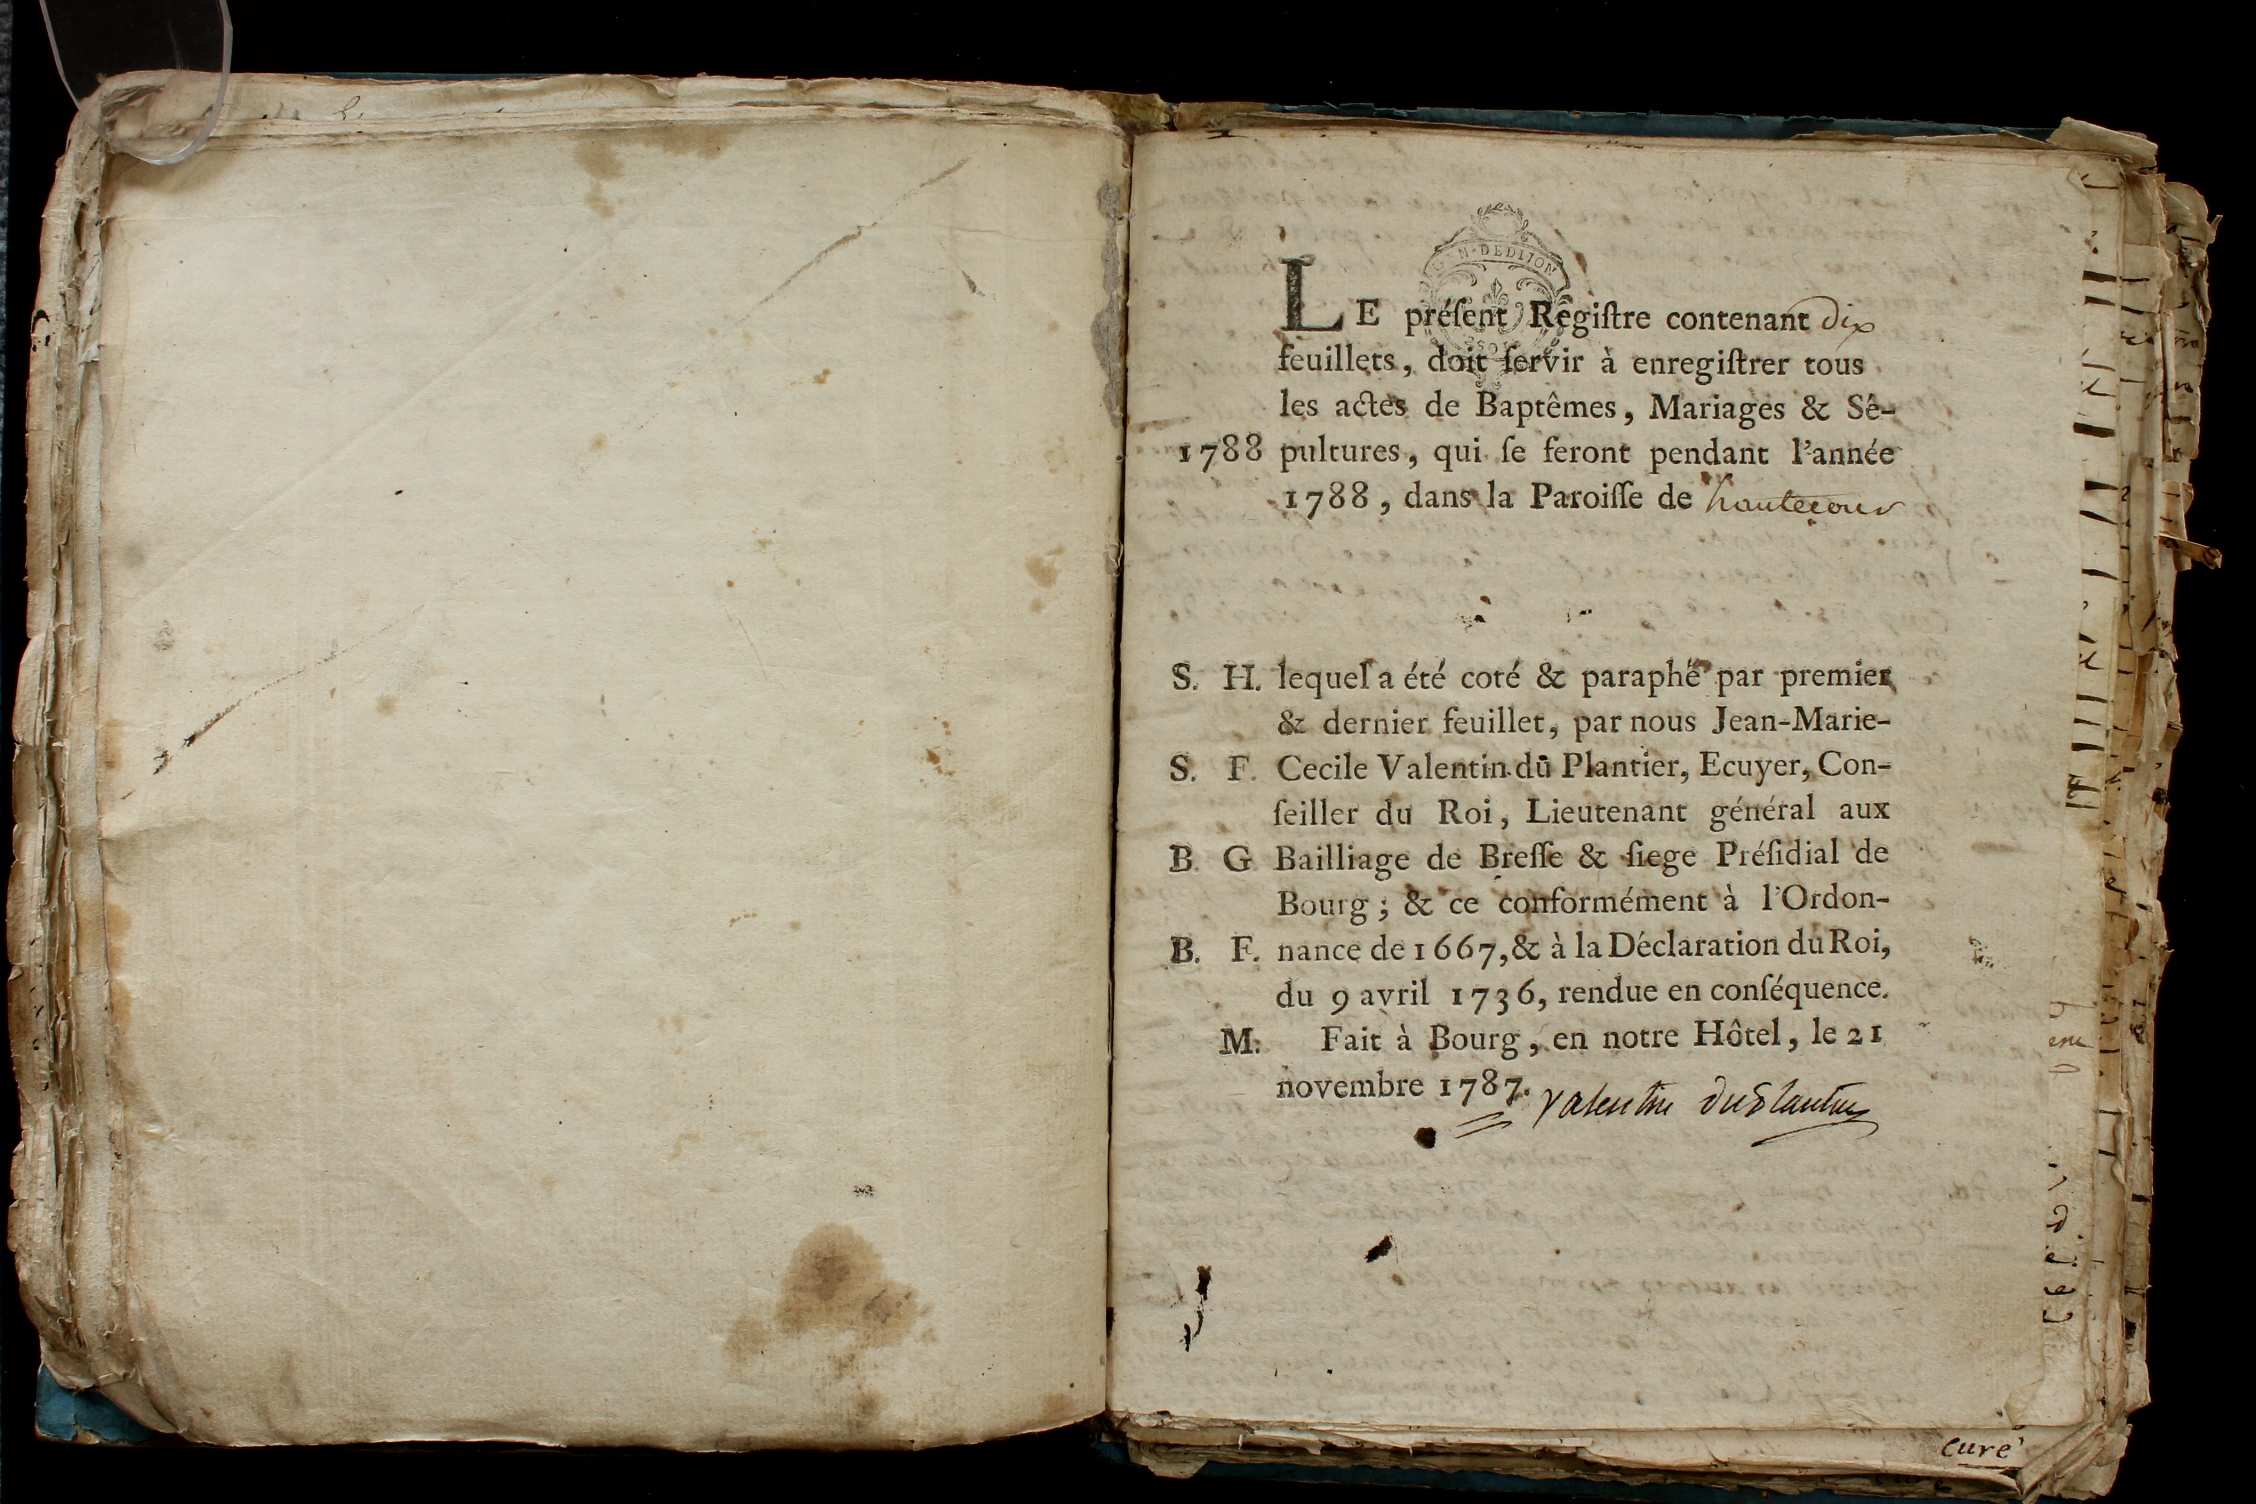 LE préſent Regiſtre contenant dix
feuillets, doit ſervir à enregiſtrer tous
les actes de Baptêmes, Mariages & Sé-
1788 pultures, qui ſe feront pendant l'année
1788, dans la Paroiſſe de hautecour
S. H. lequel a été coté & paraphé par premier
& dernier feuillet, par nous Jean-Marie-
S. F. Cecile Valentin du Plantier, Ecuyer, Con-
ſeiller du Roi, Lieutenant général aux
B. G Bailliage de Breſſe & ſiege Préſidial de
Bourg; & ce conformément à l'Ordon-
B. F. nance de 1667, & à la Déclaration du Roi,
du 9 avril 1736, rendue en conſéquence.
M. Fait à Bourg, en notre Hôtel, le 21
novembre 1787. Valentin duplantier
curé